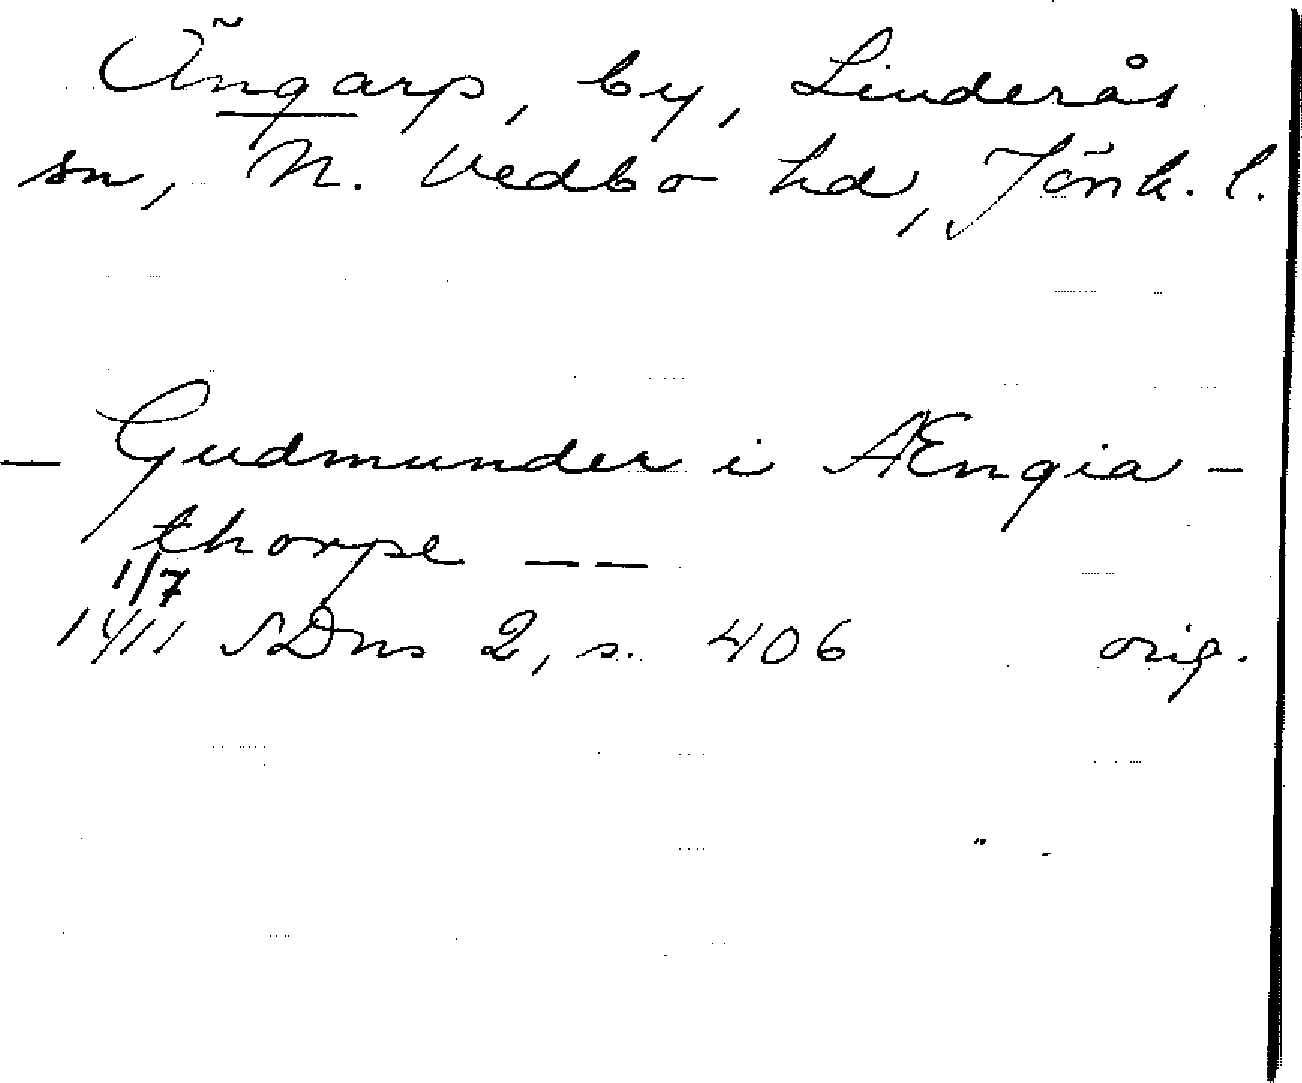 Ängarp, by, Linderås
sn, N. Vedbo hd, Jönk. l.
— Gudmunder i Ængia-
thorpe — —
1/7
1411 SDns 2, s. 406 orig.